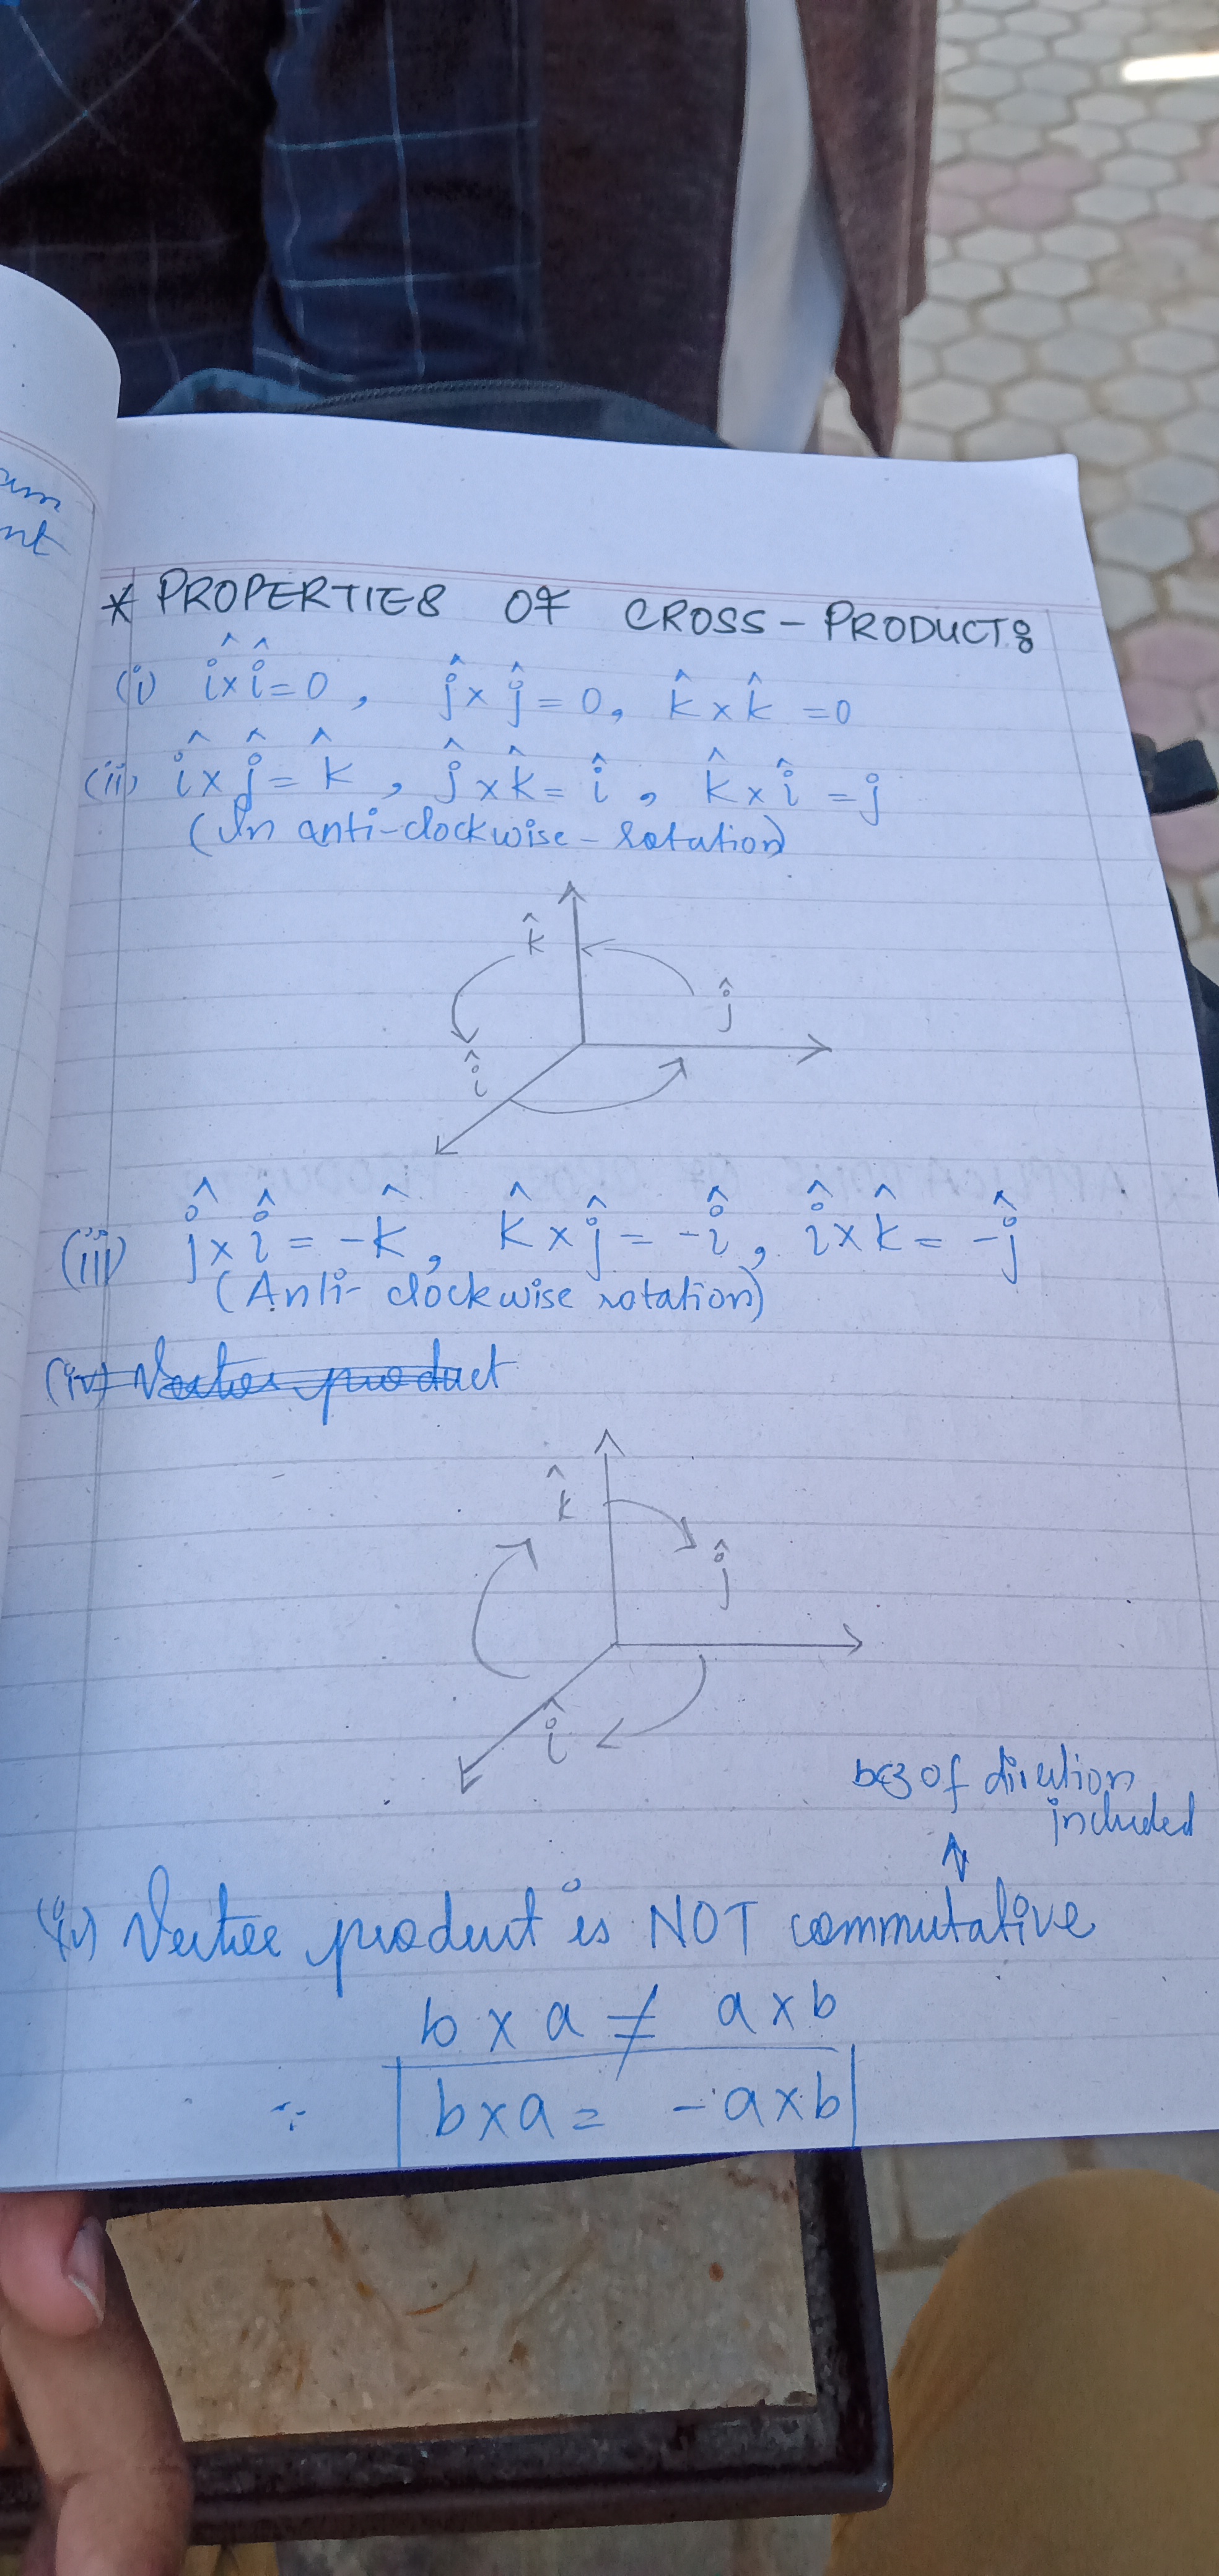 um
nt
* PROPERTIES OF CROSS-PRODUCT:
(i) î×î=0, ĵ×ĵ=0, k̂×k̂=0
(ii) î×ĵ=k̂, ĵ×k̂=î, k̂×î=j
(In anti-clockwise-rotation)
k̂
ĵ
î
(iii) ĵ×î=-k̂, k̂×ĵ=-î, î×k̂=-ĵ
(Anti-clockwise rotation)
(iv) Vector product
k̂
ĵ
î
bcz of dirution
included
↑
(iv) Vector product is NOT commutative
b×a≠a×b
∵ b×a=-a×b